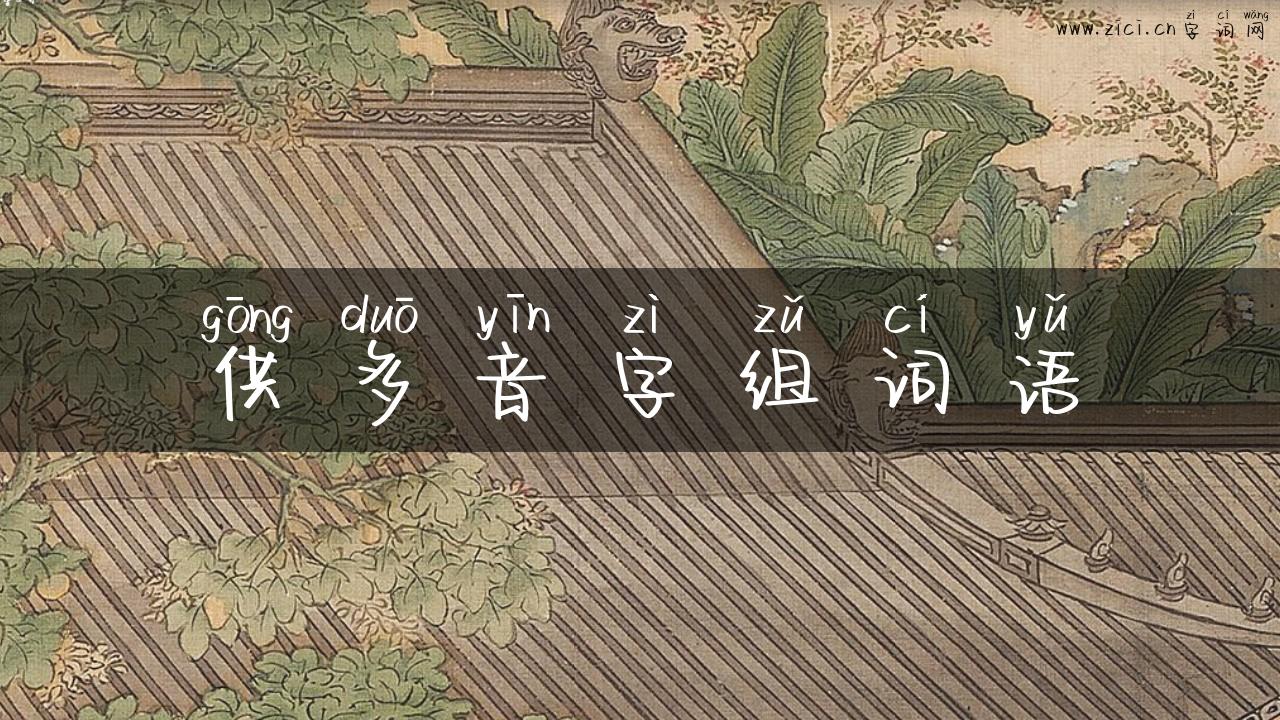 zì cí wǎng
www.zici.cn 字词网
gōng duō yīn zì zǔ cí yǔ
供多音字组词语